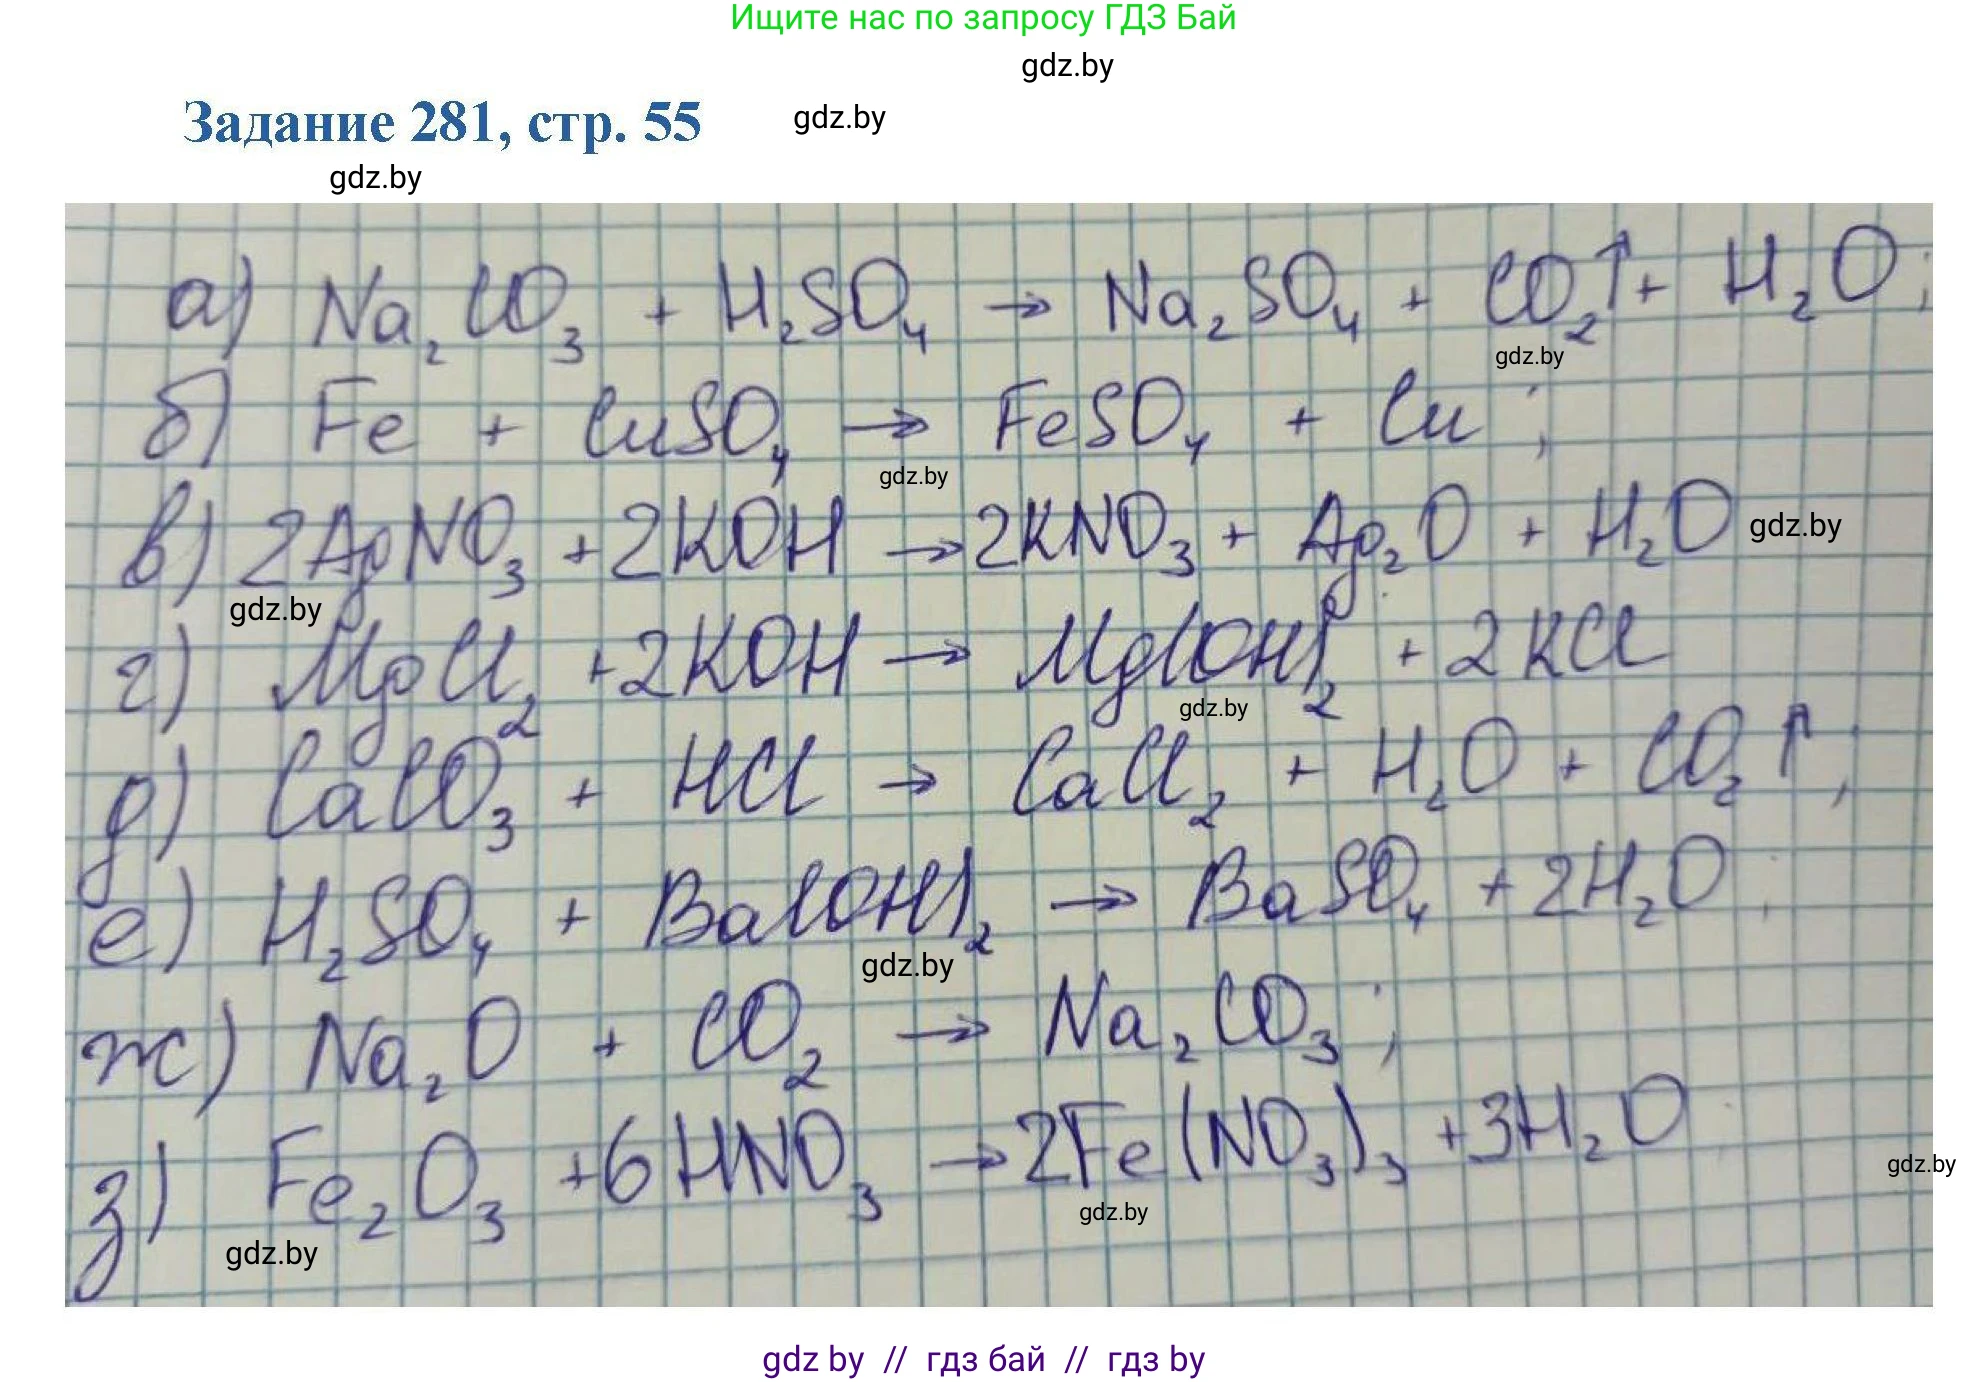 Ищите нас по запросу ГДЗ Бай
gdz.by
Задание 281, стр. 55
gdz.by
gdz.by
а) Na₂CO₃ + H₂SO₄ → Na₂SO₄ + CO₂↑ + H₂O;
gdz.by
б) Fe + CuSO₄ → FeSO₄ + Cu;
gdz.by
в) 2AgNO₃ + 2KOH → 2KNO₃ + Ag₂O + H₂O
gdz.by
gdz.by
г) MgCl₂ + 2KOH → Mg(OH)₂ + 2KCl
gdz.by
д) CaCO₃ + HCl → CaCl₂ + H₂O + CO₂↑;
е) H₂SO₄ + Ba(OH)₂ → BaSO₄ + 2H₂O;
gdz.by
ж) Na₂O + CO₂ → Na₂CO₃;
з) Fe₂O₃ + 6HNO₃ → 2Fe(NO₃)₃ + 3H₂O
gdz.by
gdz.by
gdz.by
gdz by // гдз бай // гдз by